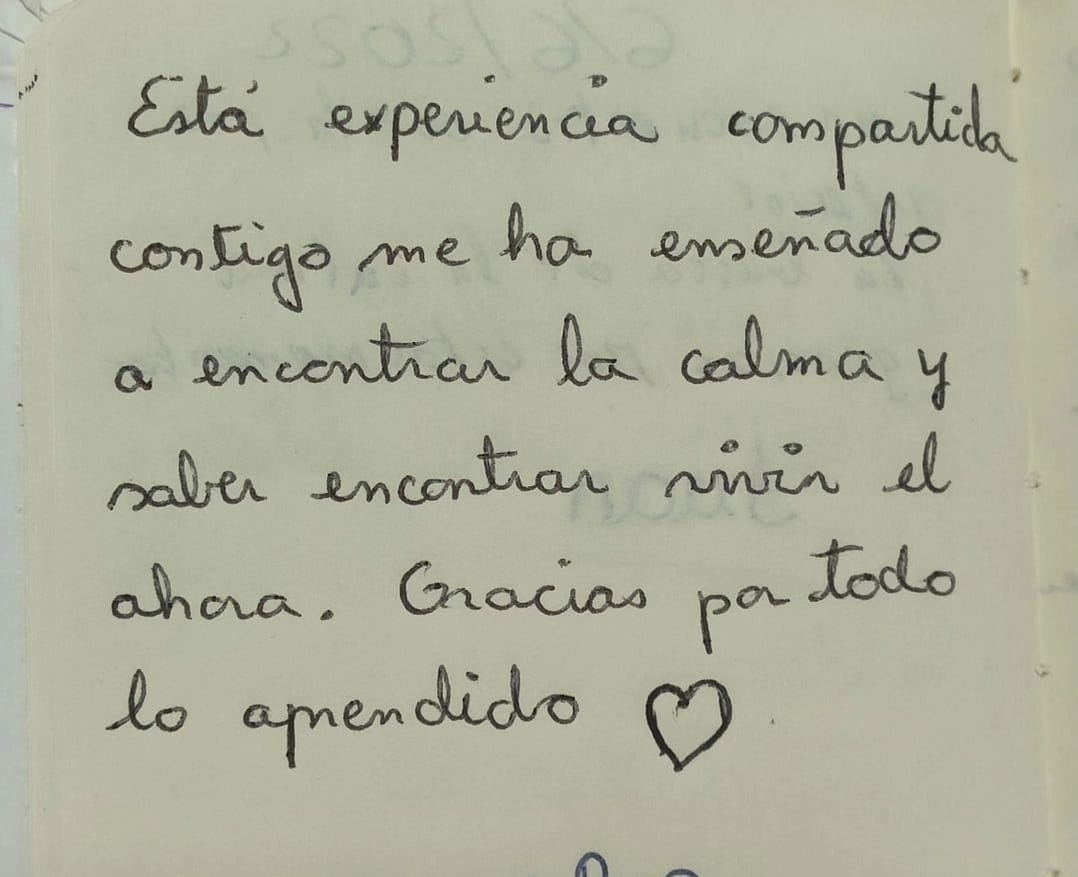 Está experiencia compartida
contigo me ha enseñado
a encontrar la calma y
saber encontrar vivir el
ahora. Gracias por todo
lo aprendido ♡